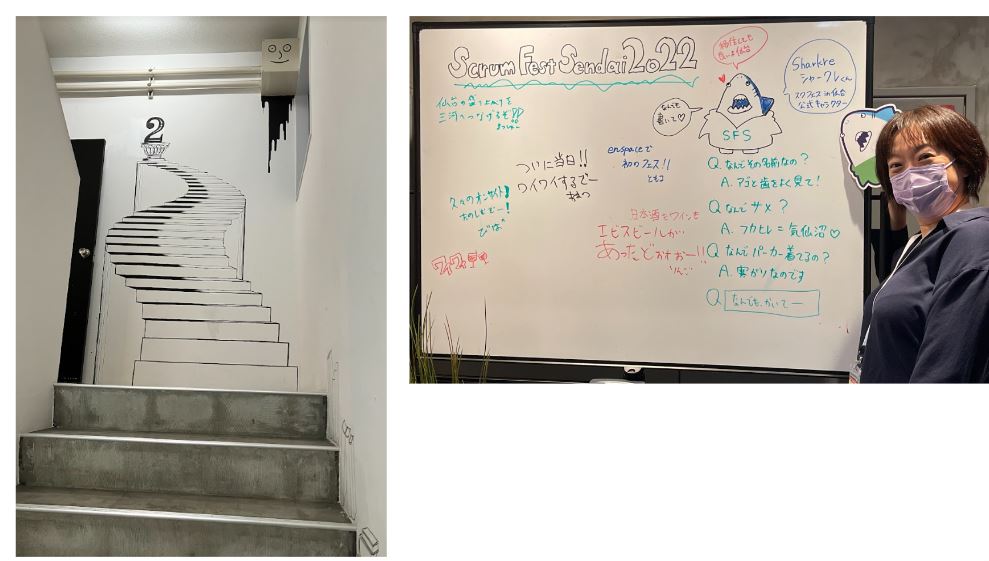 2
Scrum Fest Sendai 2022
移住しても
良いよ仙台
Sharkre
シャークレくん
スクフェス in 仙台
公式キャラクター
仙台の盛り上がりを
三河へつなげるぞ!!
なんでも
書いて♡
SFS
ついに当日!!
ワイワイするでー
enspaceで
初のフェス!!
ともこ
久々のオンサイト!
たのしむでー!
びば
日本酒もワインも
エビスビールが…
あったどおおおー!!
りんご
ワイワイ
Q なんでその名前なの?
A. アゴと歯をよく見て!
Q なんでサメ?
A. フカヒレ=気仙沼♡
Q なんでパーカー着てるの?
A. 寒がりなのです
Q なんでも、かいてー